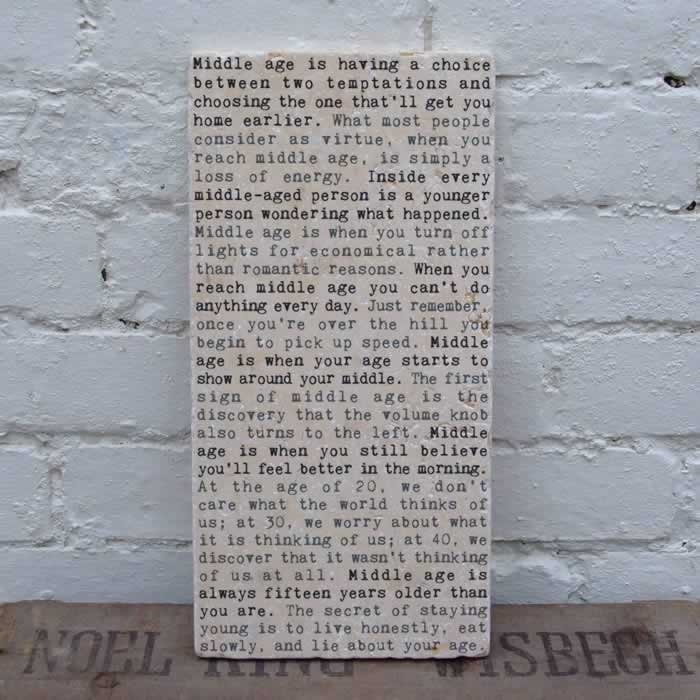 Middle age is having a choice
between two temptations and
choosing the one that'll get you
home earlier. What most people
consider as virtue, when you
reach middle age, is simply a
loss of energy. Inside every
middle-aged person is a younger
person wondering what happened.
Middle age is when you turn off
lights for economical rather
than romantic reasons. When you
reach middle age you can't do
anything every day. Just remember,
once you're over the hill you
begin to pick up speed. Middle
age is when your age starts to
show around your middle. The first
sign of middle age is the
discovery that the volume knob
also turns to the left. Middle
age is when you still believe
you'll feel better in the morning.
At the age of 20, we don't
care what the world thinks of
us; at 30, we worry about what
it is thinking of us; at 40, we
discover that it wasn't thinking
of us at all. Middle age is
always fifteen years older than
you are. The secret of staying
young is to live honestly, eat
slowly, and lie about your age.
NOEL KING WISBECH